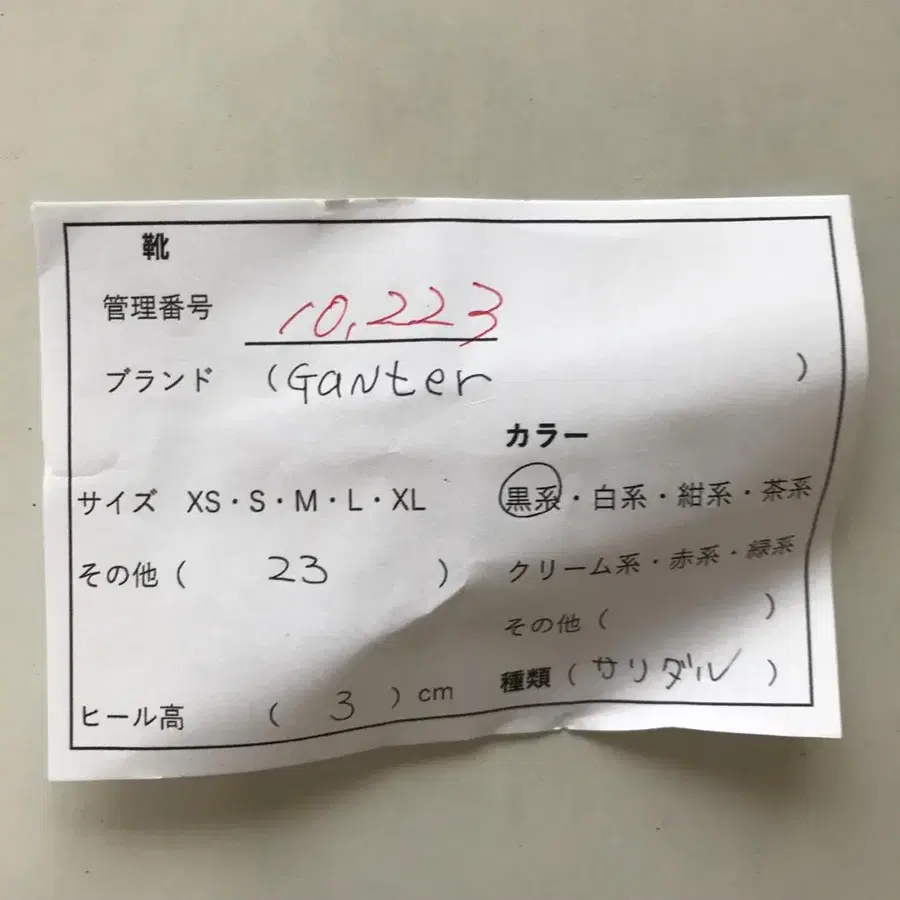 靴
管理番号 10,223
ブランド (Ganter )
カラー
サイズ XS・S・M・L・XL 黒系・白系・紺系・茶系
その他 ( 23 ) クリーム系・赤系・緑系
その他 ( )
種類 ( サリダル )
ヒール高 ( 3 ) cm